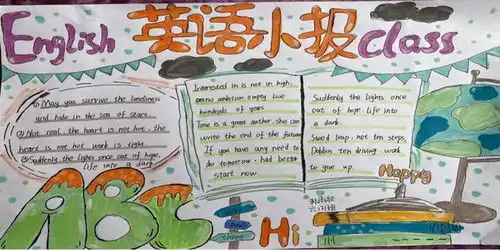 English 英语小报 class
① May you survive the loneliness
and hide in the sea of stars.
② Not real, the heart is not hot, the
heart is not hot work is sight
③ Suddenly the lights once out of hope,
life into a dark.
Interested in is not in high,
ambition empty live
hundreds of years
Time is a great author, she can
write the end of the future
If you have any need to
do tomorrow, had better
start now
Suddenly the lights once
out of hope life into
a dark.
Steed leap, not ten steps,
Dobbin ten driving, work
to give up.
ABC
Hi
Happy